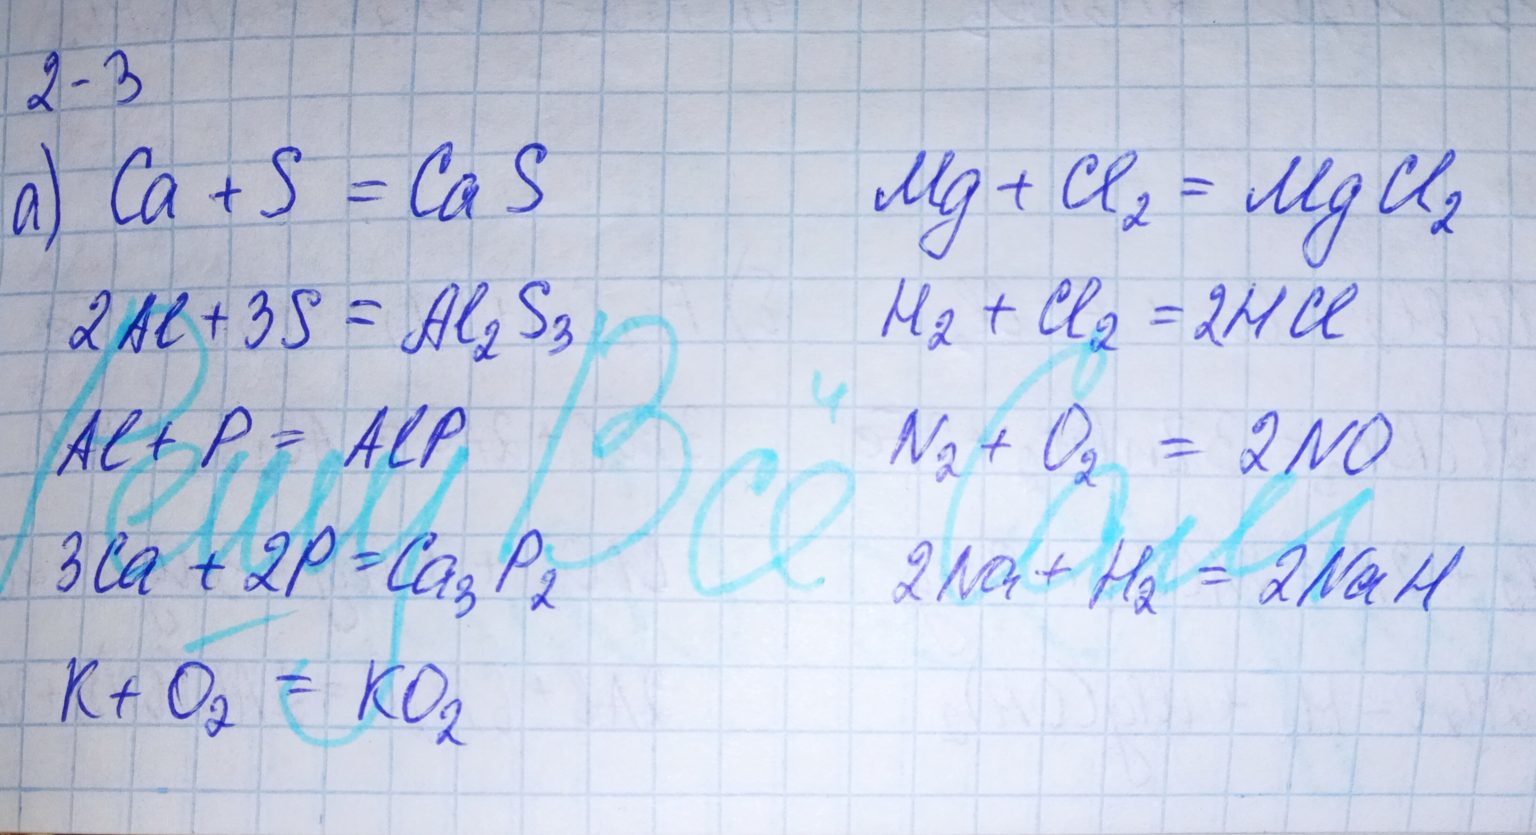 2-3
а) Ca + S = CaS
2Al + 3S = Al₂S₃
Al + P = AlP
3Ca + 2P = Ca₃P₂
K + O₂ = KO₂
Mg + Cl₂ = MgCl₂
H₂ + Cl₂ = 2HCl
N₂ + O₂ = 2NO
2Na + H₂ = 2NaH
Решу Всё Сам